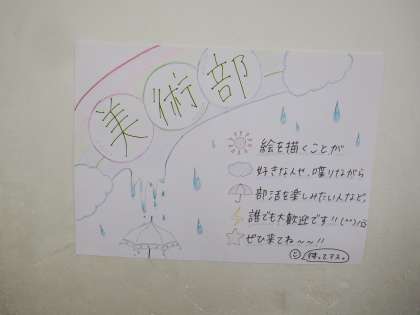 美術部
絵を描くことが
好きな人や、喋りながら
部活を楽しみたい人など。
誰でも大歓迎です!!(^^)
ぜひ来てね〜〜!!
待ってマス。